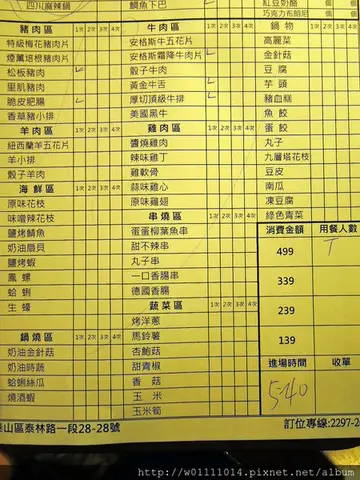 四川麻辣鍋
鯛魚下巴
紅豆奶酪 個 個
巧克力布朗尼 個 個
豬肉區 1次 2次 3次 4次
特級梅花豬肉片
煙薰培根豬肉片
松板豬肉
里肌豬肉
脆皮肥腸
香草豬小排
羊肉區 1次 2次 3次 4次
紐西蘭羊五花片
羊小排
骰子羊肉
海鮮區 1次 2次 3次 4次
原味花枝
味噌辣花枝
鹽烤鯖魚
奶油扇貝
鹽烤蝦
鳳螺
蛤蜊
生蠔
鍋燒區 1次 2次 3次 4次
奶油金針菇
奶油時蔬
蛤蜊絲瓜
燒酒蝦
牛肉區 1次 2次 3次 4次
安格斯牛五花片
安格斯霜降牛肉片
骰子牛肉
黃金牛舌
厚切頂級牛排
美國黑牛
雞肉區 1次 2次 3次 4次
醬燒雞肉
辣味雞丁
雞軟骨
蒜味雞心
原味雞翅
串燒區 1次 2次 3次 4次
蛋蛋柳葉魚串
甜不辣串
丸子串
一口香腸串
德國香腸
蔬菜區 1次 2次 3次 4次
烤洋蔥
馬鈴薯
杏鮑菇
甜青椒
香菇
玉米
玉米筍
鍋物 1次 2次 3次 4次
高麗菜
金針菇
豆腐
芋頭
豬血糕
魚餃
蛋餃
丸子
九層塔花枝
豆皮
南瓜
凍豆腐
綠色青菜
消費金額 用餐人數
499
339
239
139
進場時間 收單
5:40
山區泰林路一段28-28號
訂位專線:2297-2
http://w01111014.pixnet.net/album